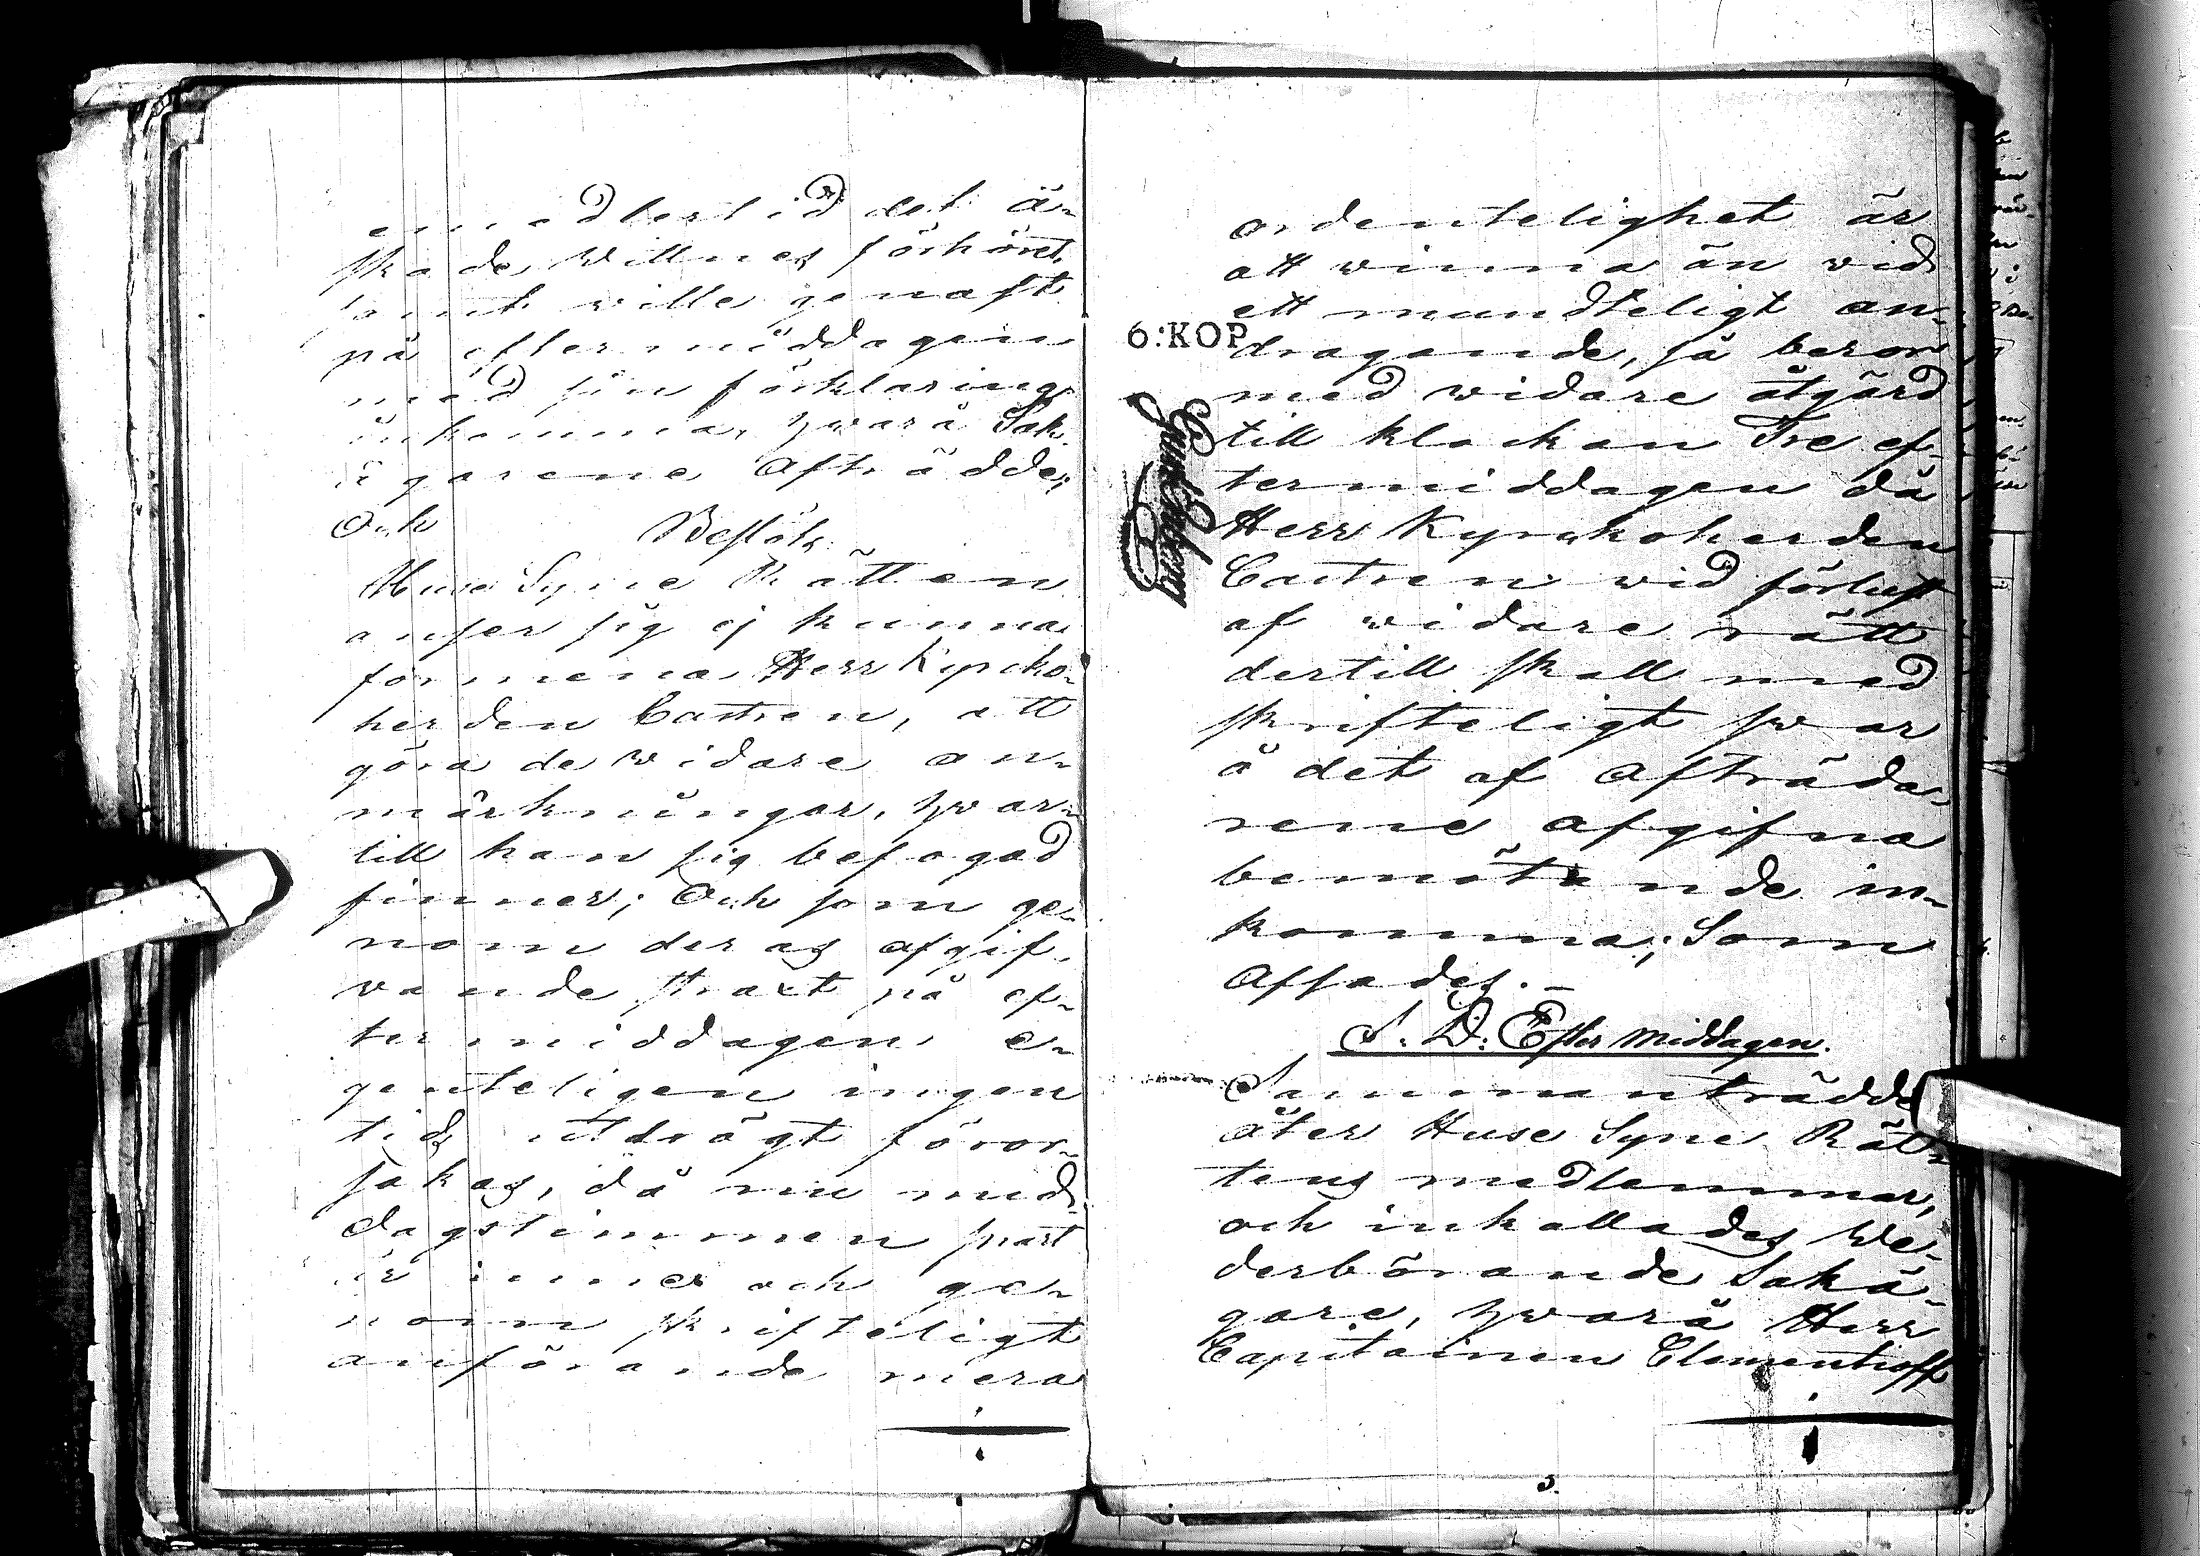 emedlertid det ä-
skade Willnes förhöret
samt wille genast
på eftermiddagen
med sin förklaring
inkomma, hwarå Sak-
ägarene Afträdde;
Och Beslöts
Huse Syne Rätten
anser sig ej kunna
förmena Herr Kyrcko-
herden Castren, att
göra de widare an-
märkningar, hwar-
till han sig befogad
finner; Och som ge-
nom deras afgif-
vande strax på ef-
termiddagen e-
genteligen ingen
tids utdrägt föror-
sakas, då nu mid-
dagstimmen snart
är inne och ge-
nom skrifteligt
anförande mera
ordentelighet är
att winna än wid
ett mundteligt an-
dragande, så beror
med widare åtgärd
till klockan Tre ef-
termiddagen då
Herr Kyrckoherden
Castren wid förlust
af widare rätt
dertill skall med
skrifteligt swar
å det af Afträda-
rene afgifna
bemötande in-
komma; Som
Afsades. —
S. D. Efter middagen.
Sammanträdde
åter Huse Syne Rät-
tens medlemmar,
och inkallades We-
derbörande Sakä-
gare, hwarå Herr
Capitainen Clementieoff
6:KOP